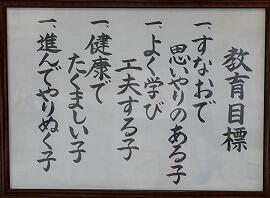 教育目標
一、すなおで
思いやりのある子
一、よく学び
工夫する子
一、健康で
たくましい子
一、進んでやりぬく子